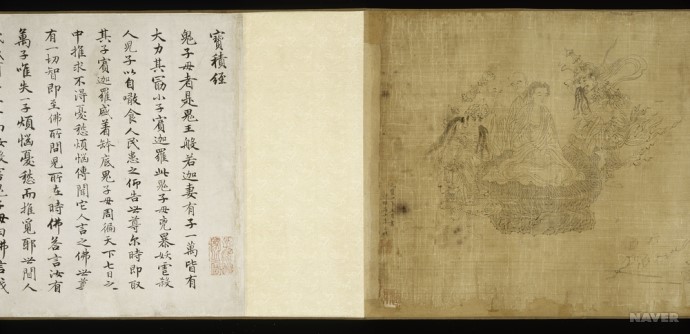 寶積經
鬼子母者是鬼王般若迦妻有子一萬皆有
大力其㝡小子賓迦羅此鬼子母兇暴妖虐殺
人兒子以自噉食人民患之仰告世尊尔時即取
其子賓迦羅盛着鉢底鬼子母周徧天下七日之
中推求不得憂愁煩惱傳聞它人言之佛世尊
有一切智即至佛所問兒所在時佛答言汝有
萬子唯失一子煩惱憂愁而推覓耶世間人
NAVER